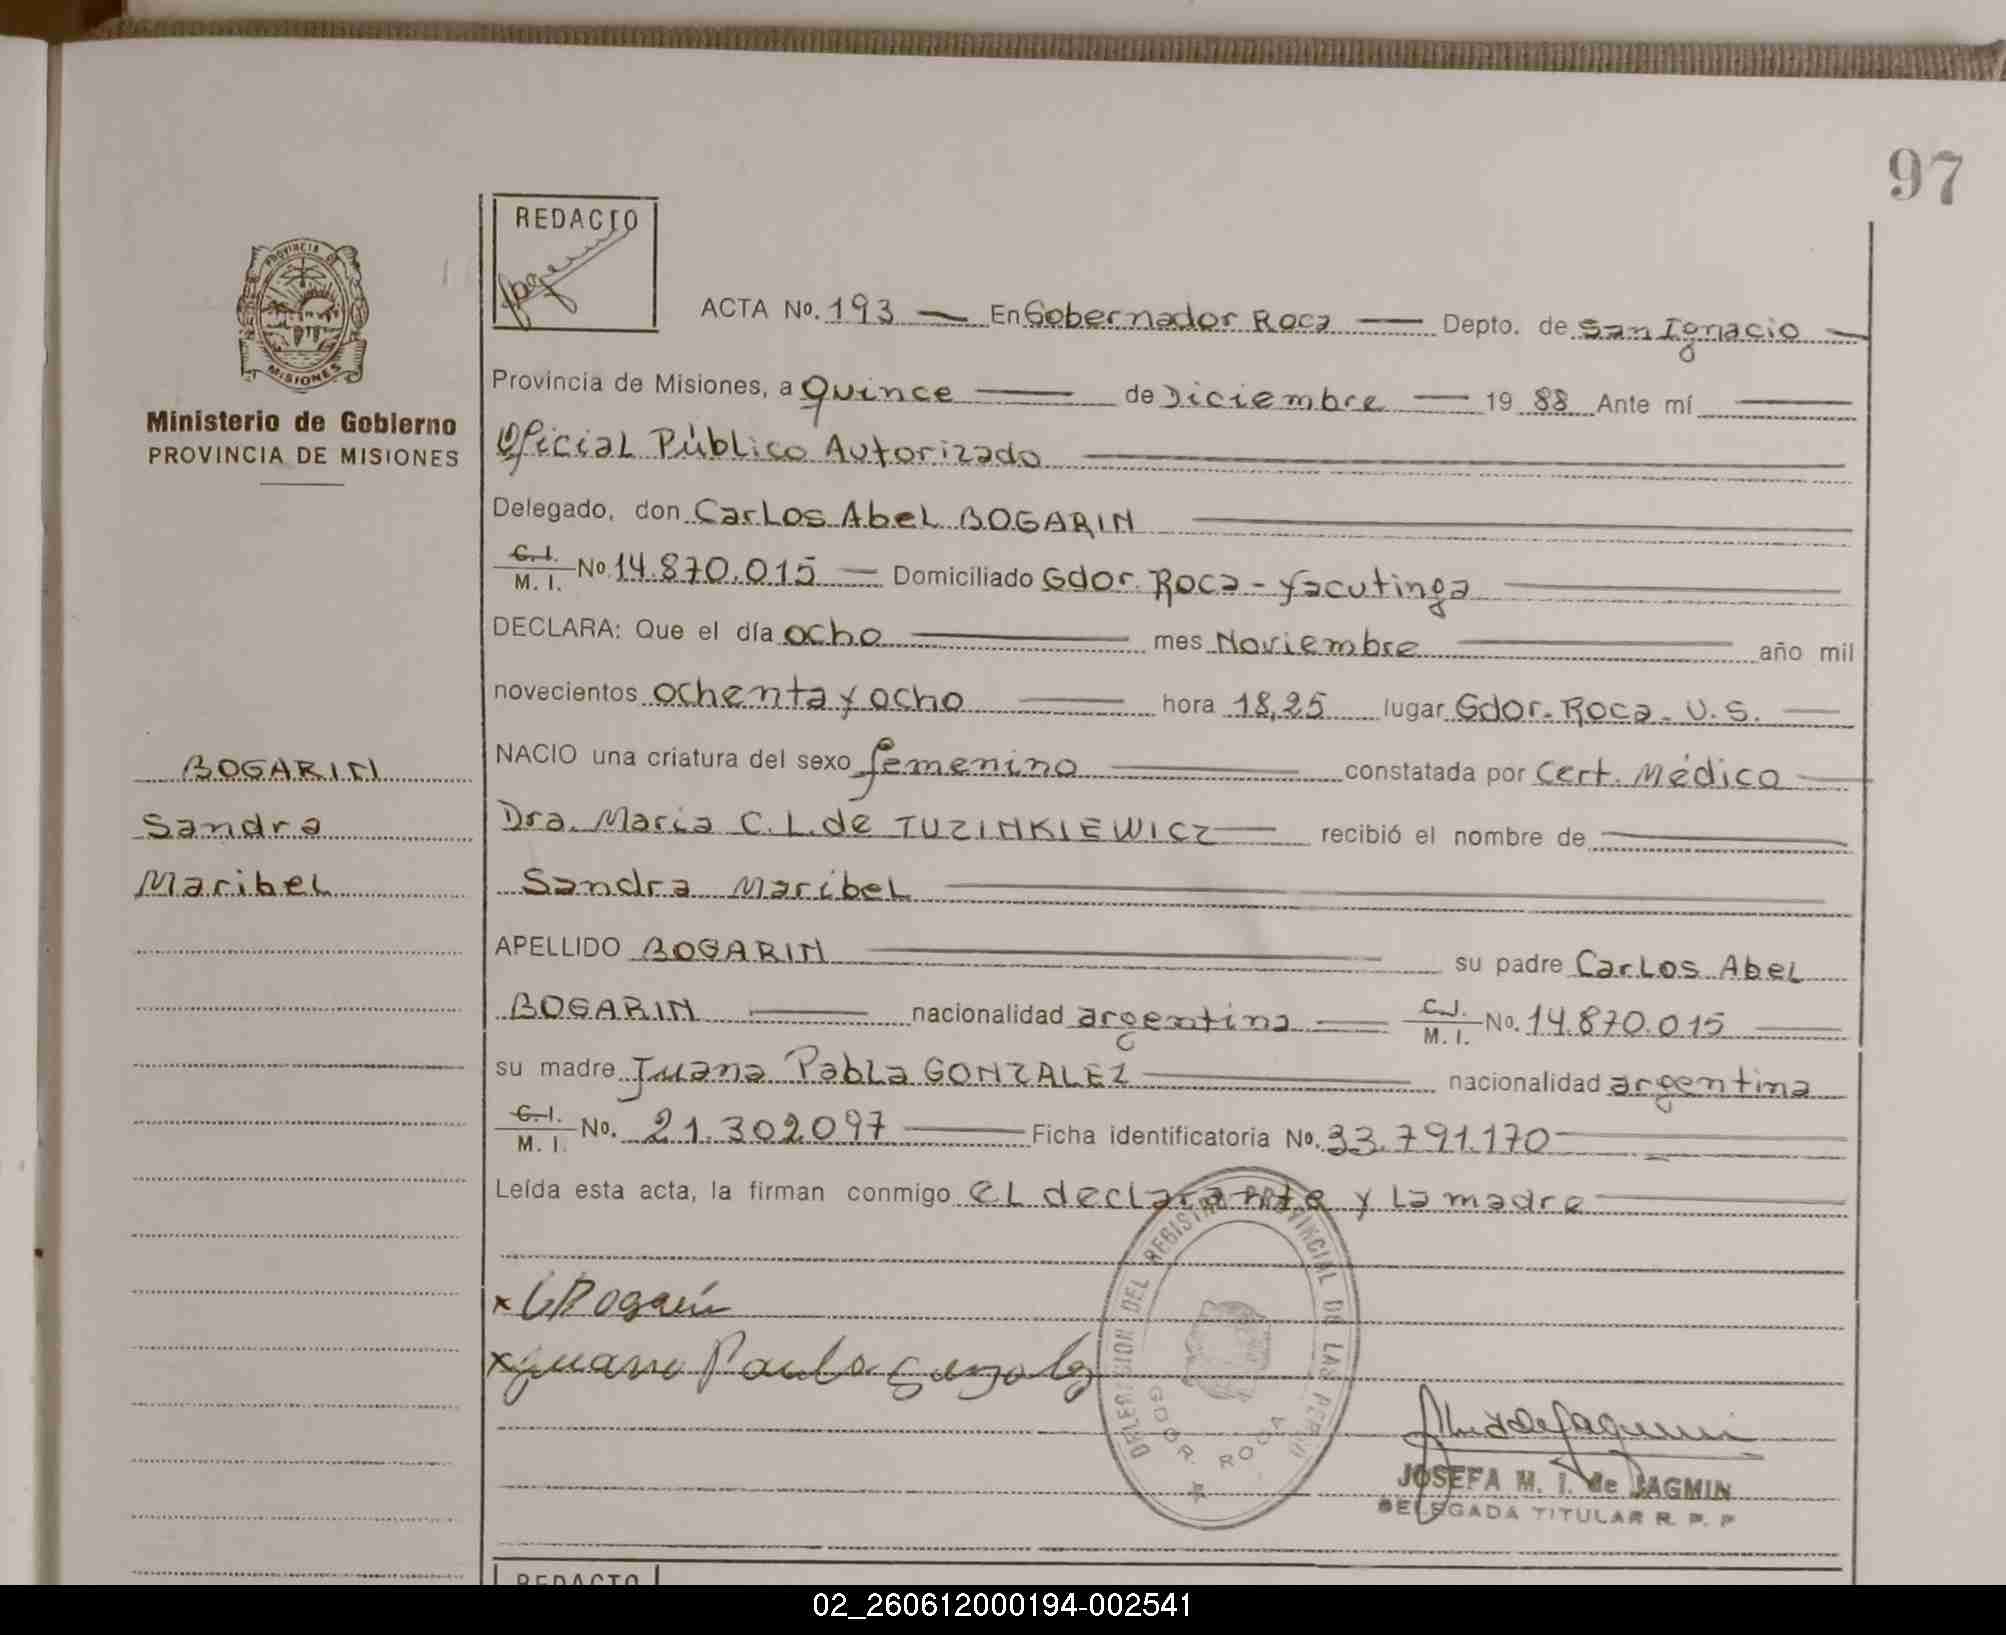 97
REDACTO
PROVINCIA DE
MISIONES
ACTA No. 193 — En Gobernador Roca — Depto. de San Ignacio —
Ministerio de Gobierno
PROVINCIA DE MISIONES
Provincia de Misiones, a Quince — de Diciembre — 19 88 Ante mí —
Oficial Público Autorizado —
Delegado, don Carlos Abel BOGARIN —
C.I. M. I. No. 14.870.015 — Domiciliado Gdor. Roca - Yacutinga —
DECLARA: Que el día ocho — mes Noviembre — año mil
novecientos ochenta y ocho — hora 18,25 lugar Gdor. Roca - U.S. —
NACIO una criatura del sexo femenino — constatada por Cert. Médico —
Dra. Maria C. L. de TUZINKIEWICZ — recibió el nombre de —
Sandra Maribel —
APELLIDO BOGARIN — su padre Carlos Abel
BOGARIN — nacionalidad argentina — C.I. M. I. No. 14.870.015 —
su madre Juana Pabla GONZALEZ — nacionalidad argentina
C.I. M. I. No. 21.302.097 — Ficha identificatoria No. 33.791.170 —
Leída esta acta, la firman conmigo el declarante y la madre —
BOGARIN
Sandra
Maribel
x C Bogarín
x Juana Paula Gonzalez
DELEGACION DEL REGISTRO PROVINCIAL DE LAS PERSO
GDOR. ROCA
JOSEFA M. I. de JAGMIN
DELEGADA TITULAR R. P. P
REDACTO
02_260612000194-002541